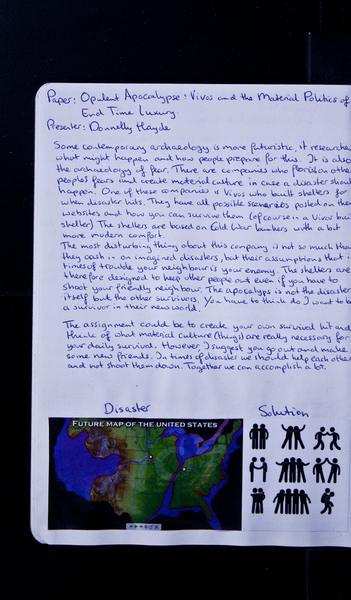 Paper: Opulent Apocalypse: Vivos and the Material Politics of
End Time Luxury
Presenter: Donnelly Hayde
Some contemporary archaeology is more futuristic, it researches
what might happen and how people prepare for this. It is also
the archaeology of fear. There are companies who on other
people's fears and create material culture in case a disaster should
happen. One of these companies is Vivos who built shelters for
when disaster hits. They have all possible scenerios posted on their
websites and how you can survive them (of course in a Vivos bun
shelter) The shelters are based on Cold War bunkers with a bit
more modern comfort.
The most disturbing thing about this company is not so much tha
they cash in on imagined disasters, but their assumptions that i
times of trouble your neighbour is your enemy. The shelters are
therefore designed to keep other people out even if you have to
shoot your friendly neighbour. The apocalyps is not the disaster
itself but the other survivors. You have to think do I want to b
a survivor in their new world.
The assignment could be to create your own survival kit and
think of what material culture (things) are really necessary for
your daily survival. However, I suggest you go out and make
some new friends. In times of disaster we should help each other
and not shoot them down. Together we can accomplish a lot.
Disaster
Solution
FUTURE MAP OF THE UNITED STATES